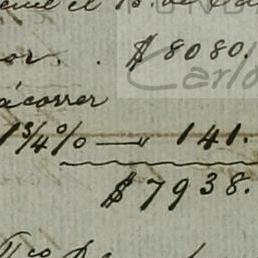 de
or. . $ 8080.
Carlo
á correr
1 3/4 % — " 141.
$ 7938.